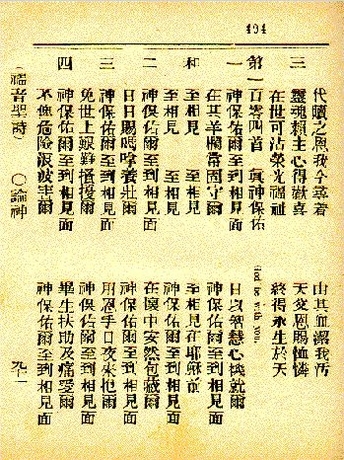 494
代贖之恩我今尋着　由其血潔我污
三　靈魂賴主心得歡喜　天父恩賜恤憐
在世可沾榮光福祉　終得永生於天
第一百零四首　真神保佑　God be with you.
一　神保佑爾至到相見面　日以智慧心機就爾
在其羊欄常固守爾　神保佑爾至到相見面
和　至相見　至相見　至相見在耶穌前
至相見　至相見　神保佑爾至到相見面
二　神保佑爾至到相見面　在懷中安然包藏爾
日日賜嗎嗱養壯爾　神保佑爾至到相見面
三　神保佑爾至到相見面　用恩手日夜來也爾
免世上艱難搔擾爾　神保佑爾至到相見面
四　神保佑爾至到相見面　畢生扶助及痛愛爾
不俾危險浪波害爾　神保佑爾至到相見面
（福音聖詩）　〇論神